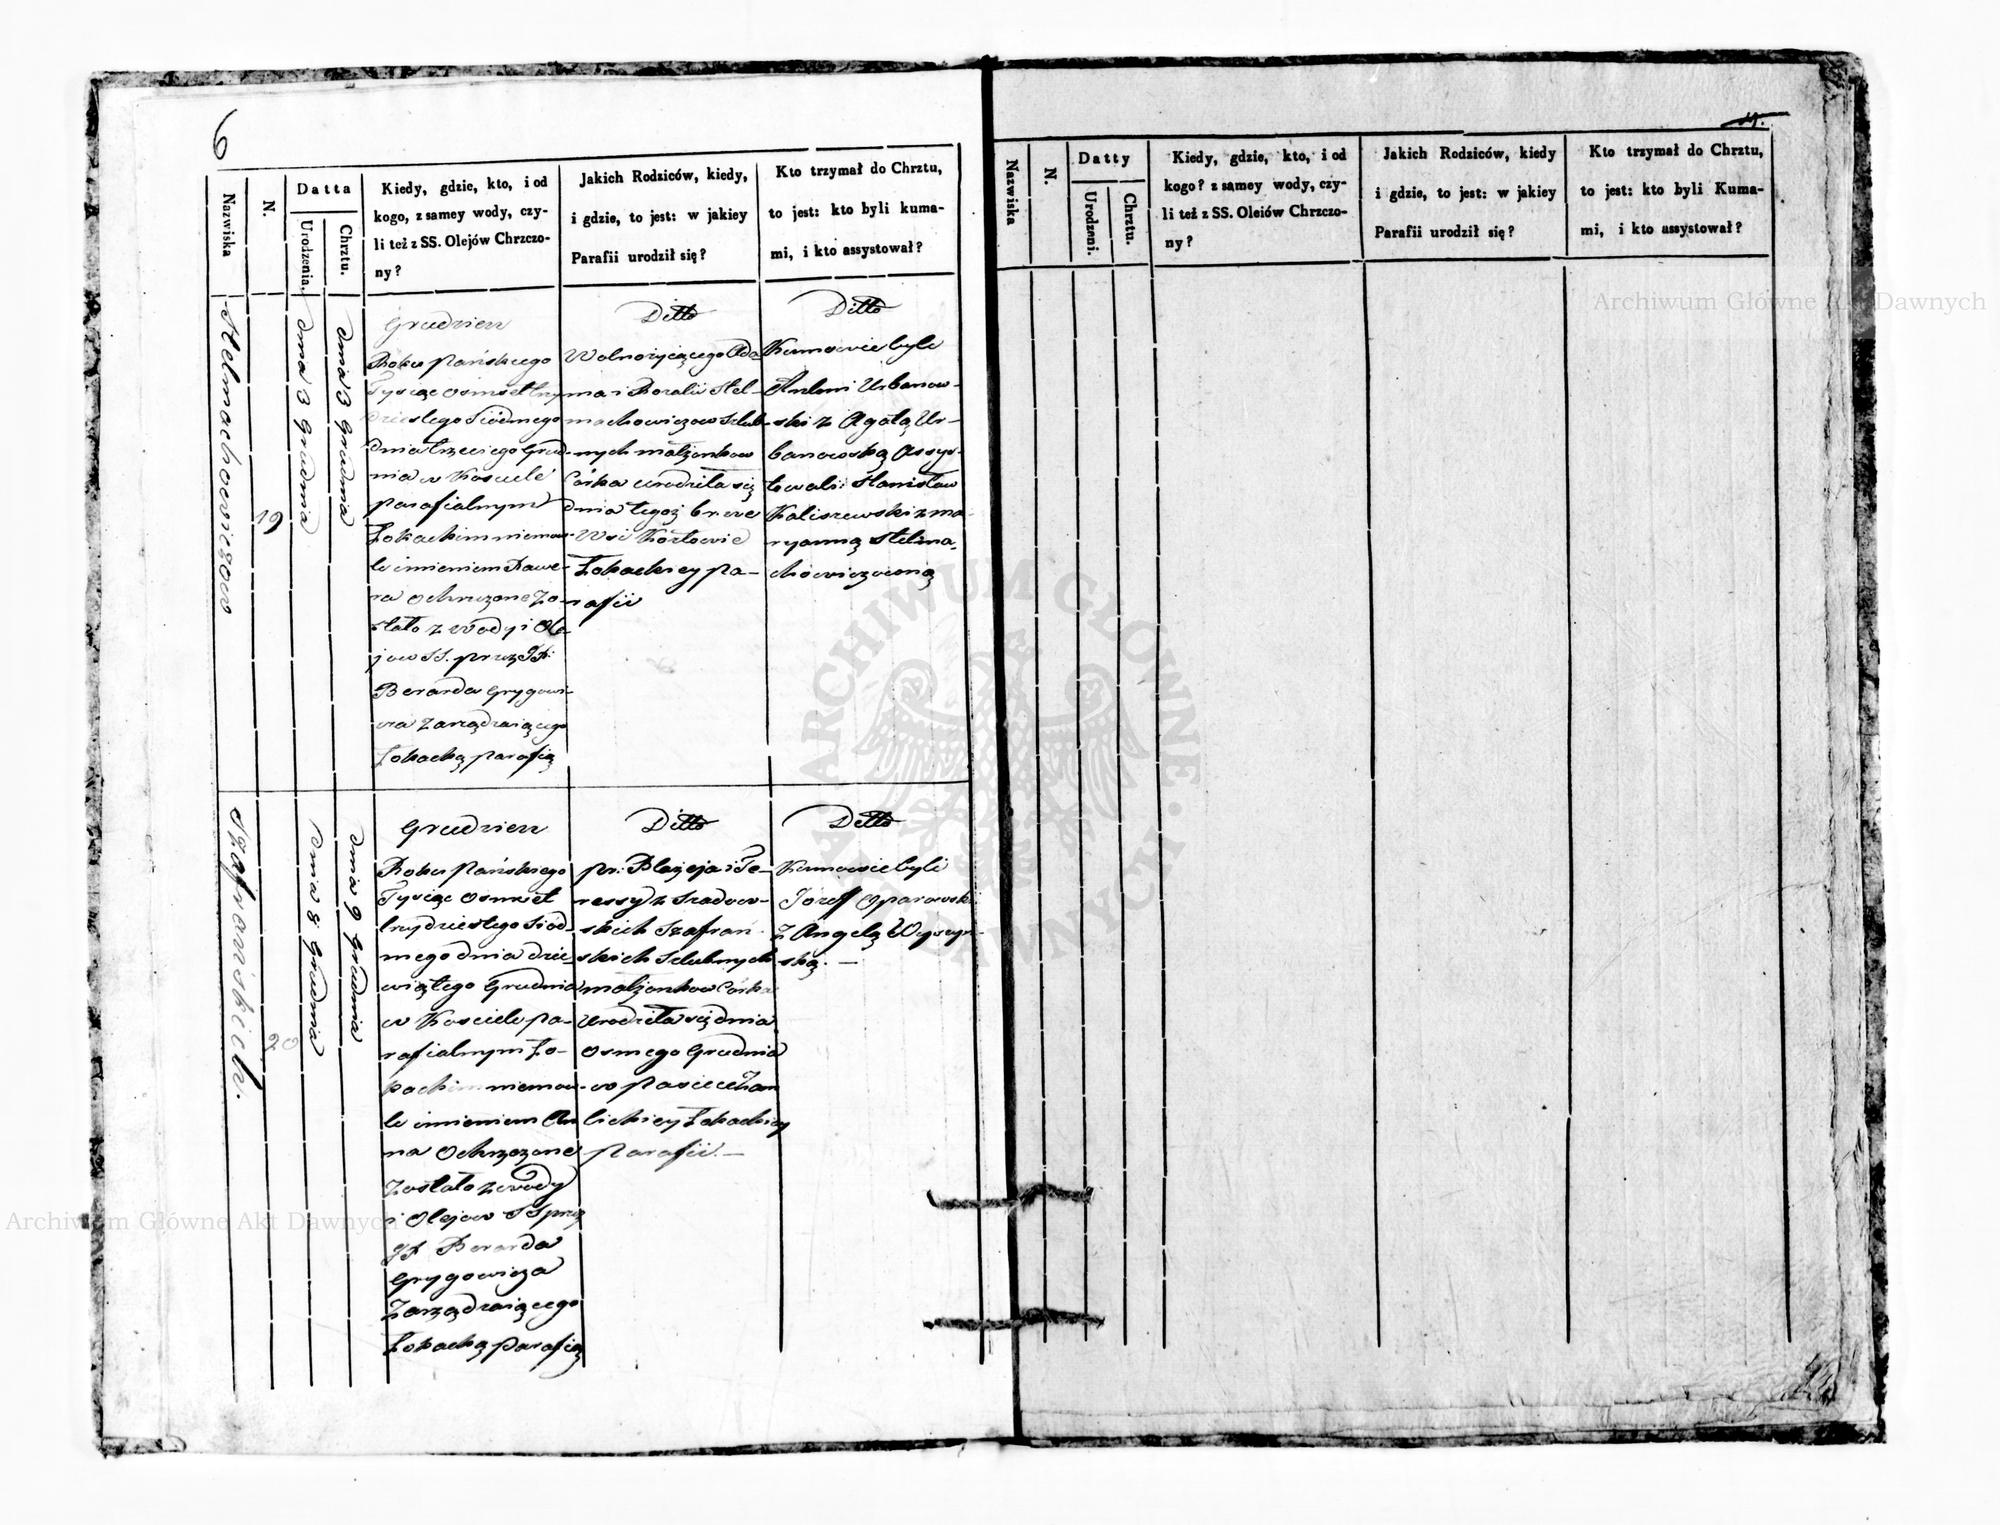 6
Nazwiska
N.
Datta
Urodzenia.
Chrztu.
Kiedy, gdzie, kto, i od
kogo, z samey wody, czy-
li też z SS. Olejów Chrzczo-
ny?
Jakich Rodziców, kiedy,
i gdzie, to jest: w jakiey
Parafii urodził się?
Kto trzymał do Chrztu,
to jest: kto byli kuma-
mi, i kto assystował?
Stelmachowiczow
19
dnia 3 Grudnia
dnia 3 Grudnia
Grudzien
Roku Pańskiego
Tysiąc osmset trzy
dziestego Siódmego
dnia trzeciego Grud-
nia w Kosciele
parafialnym
Łokackim niemow-
le imieniem Xawe-
ra Ochrzczone Zo-
stało z wody i Ole-
jow SS. przez JX.
Berarda Grygowi-
cza Zarządzaiącego
Łokacką parafią
Ditto
Wolnożyiącego Ada
ma i Rozalii Stel-
machowiczow Szlub-
nych małżonkow
Córka urodziła się
dnia tegoż br we
Wsi Kozłowie
Łokackiey pa-
rafii
Ditto
Kumowie byli
Antoni Urbanow-
ski z Agatą Ur-
banowską Assys-
towali: Stanisław
Kaliszewski z Ma-
ryanną Stelma-
chowiczowną
Szafrańskich.
20
dnia 8 Grudnia
dnia 9 Grudnia
Grudzien
Roku Pańskiego
Tysiąc osmset
trzydziestego Siód-
mego dnia dzie-
wiątego Grudnia
w Kosciele pa-
rafialnym Ło-
kackim niemow-
le imieniem An
na Ochrzczone
Zostało z wody
i Olejow SS przez
JX Berarda
Grygowicza
Zarządzaiącego
Łokacką parafią
Ditto
pr: Błażeja i Te-
ressy z Szadow-
skich Szafrań-
skich Szlubnych
małżonkow Córka
Urodziła się dnia
osmego Grudnia
w Pasiece
lickiey Łokackiey
parafii. —
Ditto
Kumowie byli
Jozeff Oparowski
z Angelą Wyszyn-
ską. —
19.
Nazwiska
N.
Datty
Urodzeni.
Chrztu.
Kiedy, gdzie, kto, i od
kogo? z samey wody, czy-
li też z SS. Oleiów Chrzczo-
ny?
Jakich Rodziców, kiedy
i gdzie, to jest: w jakiey
Parafii urodził się?
Kto trzymał do Chrztu,
to jest: kto byli Kuma-
mi, i kto assystował?
Archiwum Główne Akt Dawnych
ARCHIWUM GŁÓWNE AKT DAWNYCH
Archiwum Główne Akt Dawnych